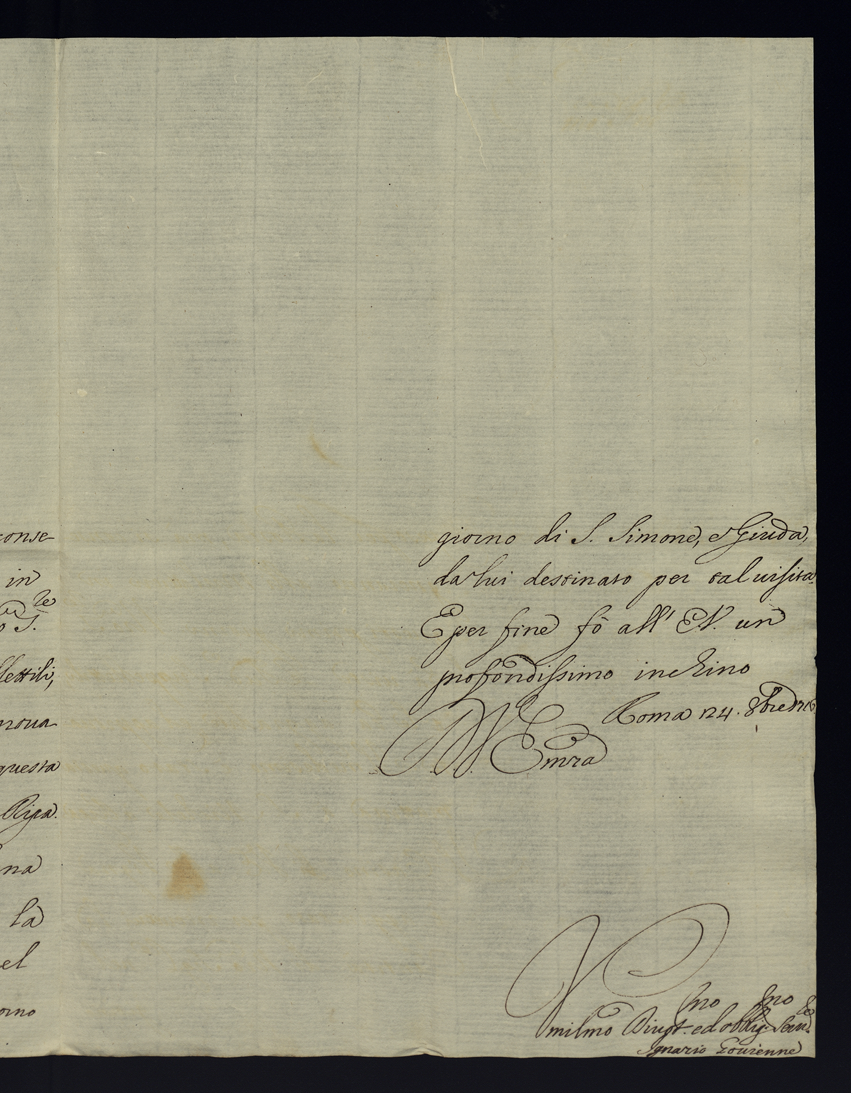 conse-
in
lettili,
nova
questa
Riga.
na
la
el
orno
giorno di S. Simone, e Giuda,
da lui destinato per tal visita.
E per fine fò all' E.V. un
profondissimo inchino
Roma 124. 8bre
Di V. Emza
mo mo
milmo Divot. ed obblig. Serv.
Ignazio